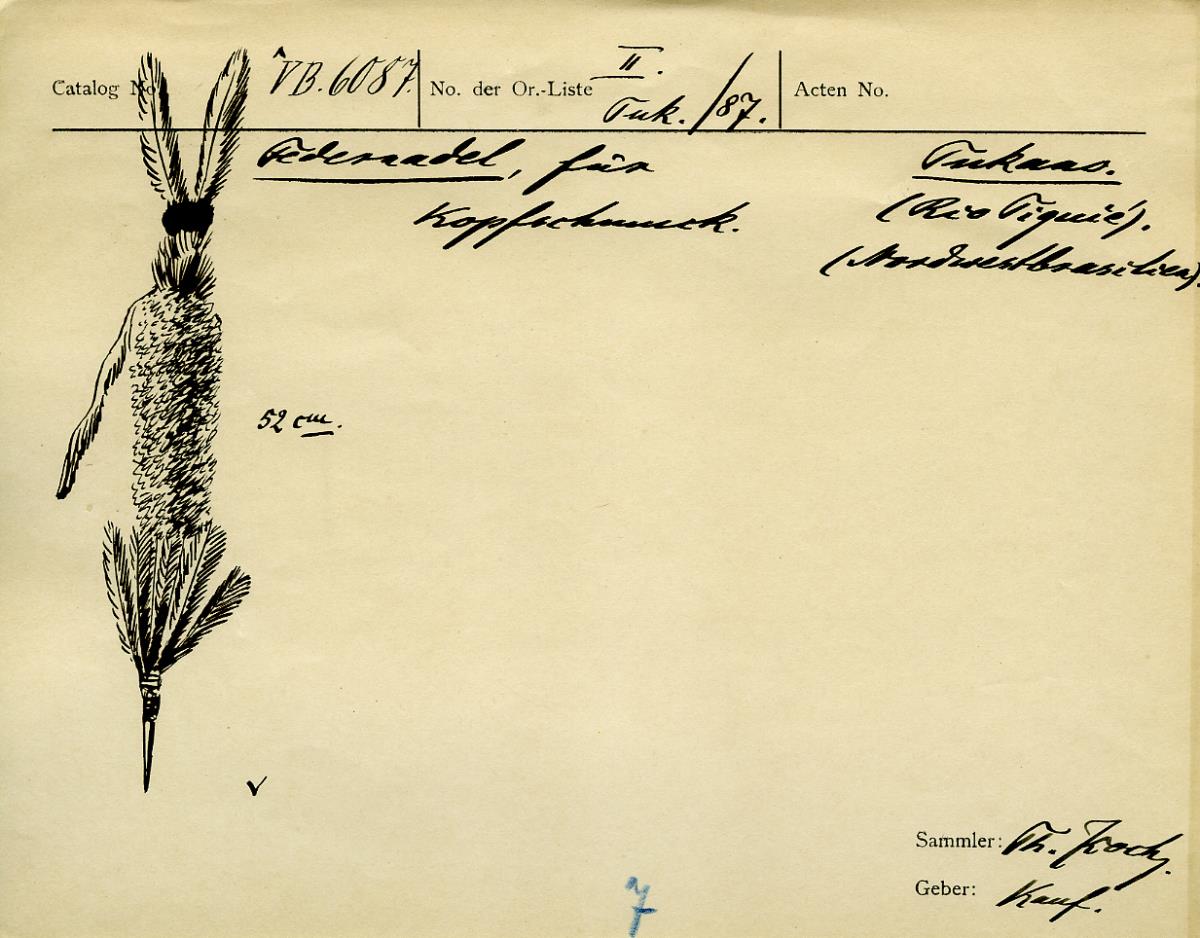 Catalog No. VB.6087. No. der Or.-Liste II. Tuk. /87. Acten No.
Federnadel, für Kopfschmuck.
Tukano.
(Rio Tiquié).
(Nordwestbrasilien).
52 cm.
Sammler: Th. Koch.
Geber: Kauf.
7